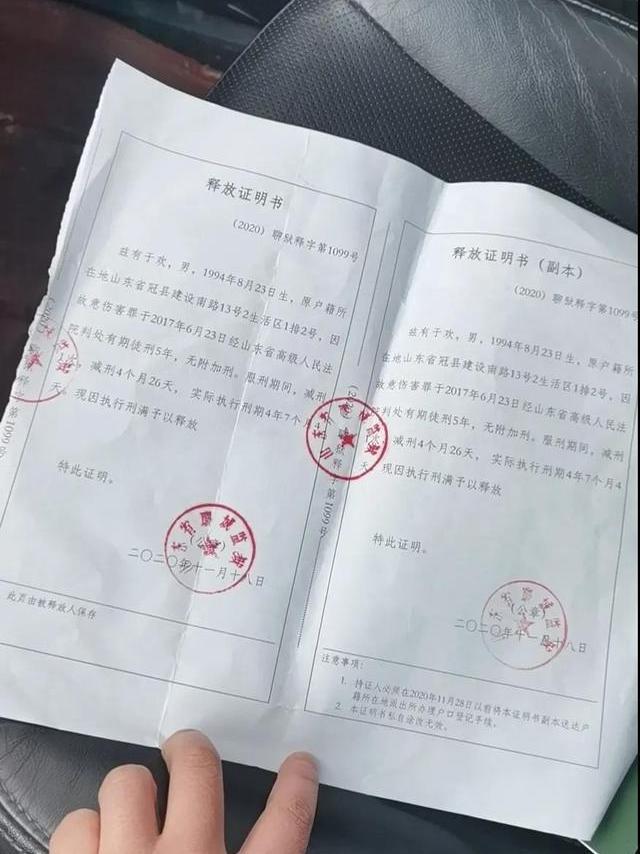 释放证明书
(2020) 聊狱释字第1099号
兹有于欢，男，1994年8月23日生，原户籍所
在地山东省冠县建设南路13号2生活区1排2号，因
故意伤害罪于2017年6月23日经山东省高级人民法
院判处有期徒刑5年，无附加刑。服刑期间，减刑
次，减刑4个月26天，实际执行刑期4年7个月4
天。现因执行刑满予以释放
特此证明。
(公章)
二〇二〇年十一月十八日
此页由被释放人保存
释放证明书（副本）
(2020) 聊狱释字第1099号
兹有于欢，男，1994年8月23日生，原户籍所
在地山东省冠县建设南路13号2生活区1排2号，因
故意伤害罪于2017年6月23日经山东省高级人民法
院判处有期徒刑5年，无附加刑。服刑期间，减刑
次，减刑4个月26天，实际执行刑期4年7个月4
天。现因执行刑满予以释放
特此证明。
(公章)
二〇二〇年十一月十八日
注意事项：
1. 持证人必须在2020年11月28日以前将本证明书副本送达户
籍所在地派出所办理户口登记手续。
2. 本证明书私自涂改无效。